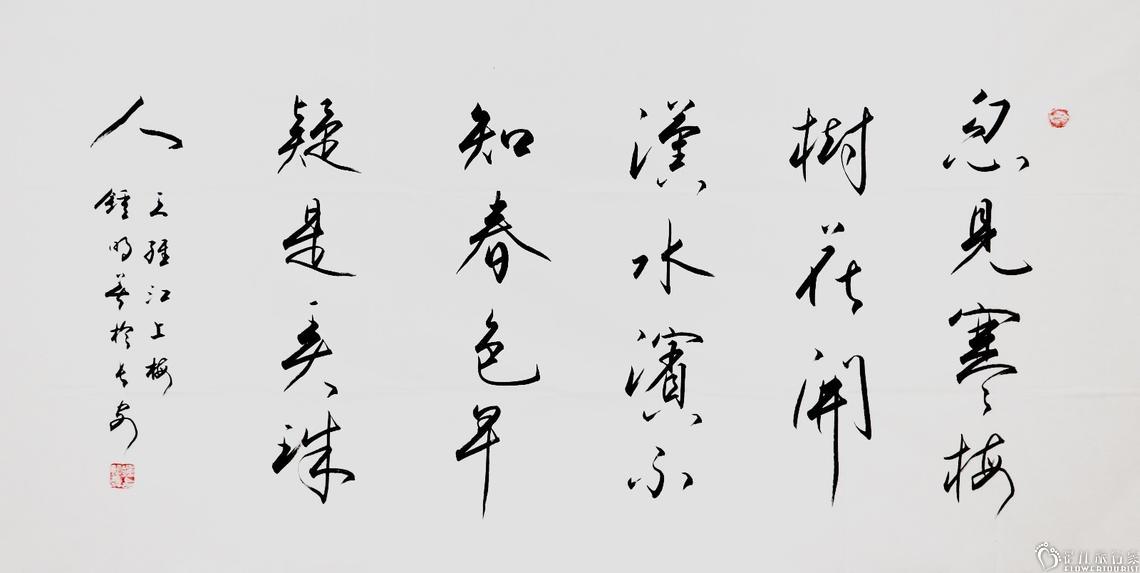 忽見寒梅
樹花開
漢水濱不
知春色早
疑是弄珠
人
王維江上梅
鍾明善於長安
花儿旅行家
FLOWERTOURIST